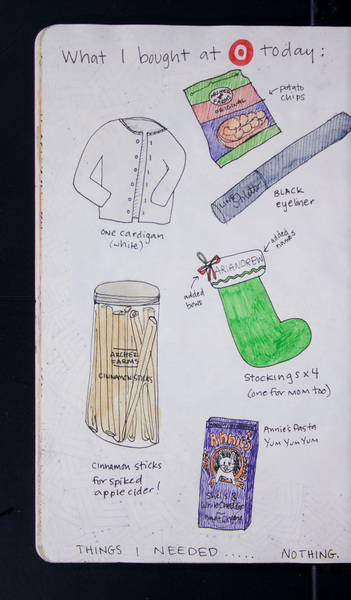 What I bought at today:
ARCHER
FARMS
ORIGINAL
potato
chips
BLACK
eyeliner
one cardigan
(white)
added
names
ARIANDREW
added
bows
ARCHER
FARMS
CINNAMON STICKS
Stockings x 4
(one for mom too)
Cinnamon sticks
for spiked
apple cider!
Annie's
Annie's Pasta
YUM YUM YUM
Shells &
White Cheddar
THINGS I NEEDED ..... NOTHING.